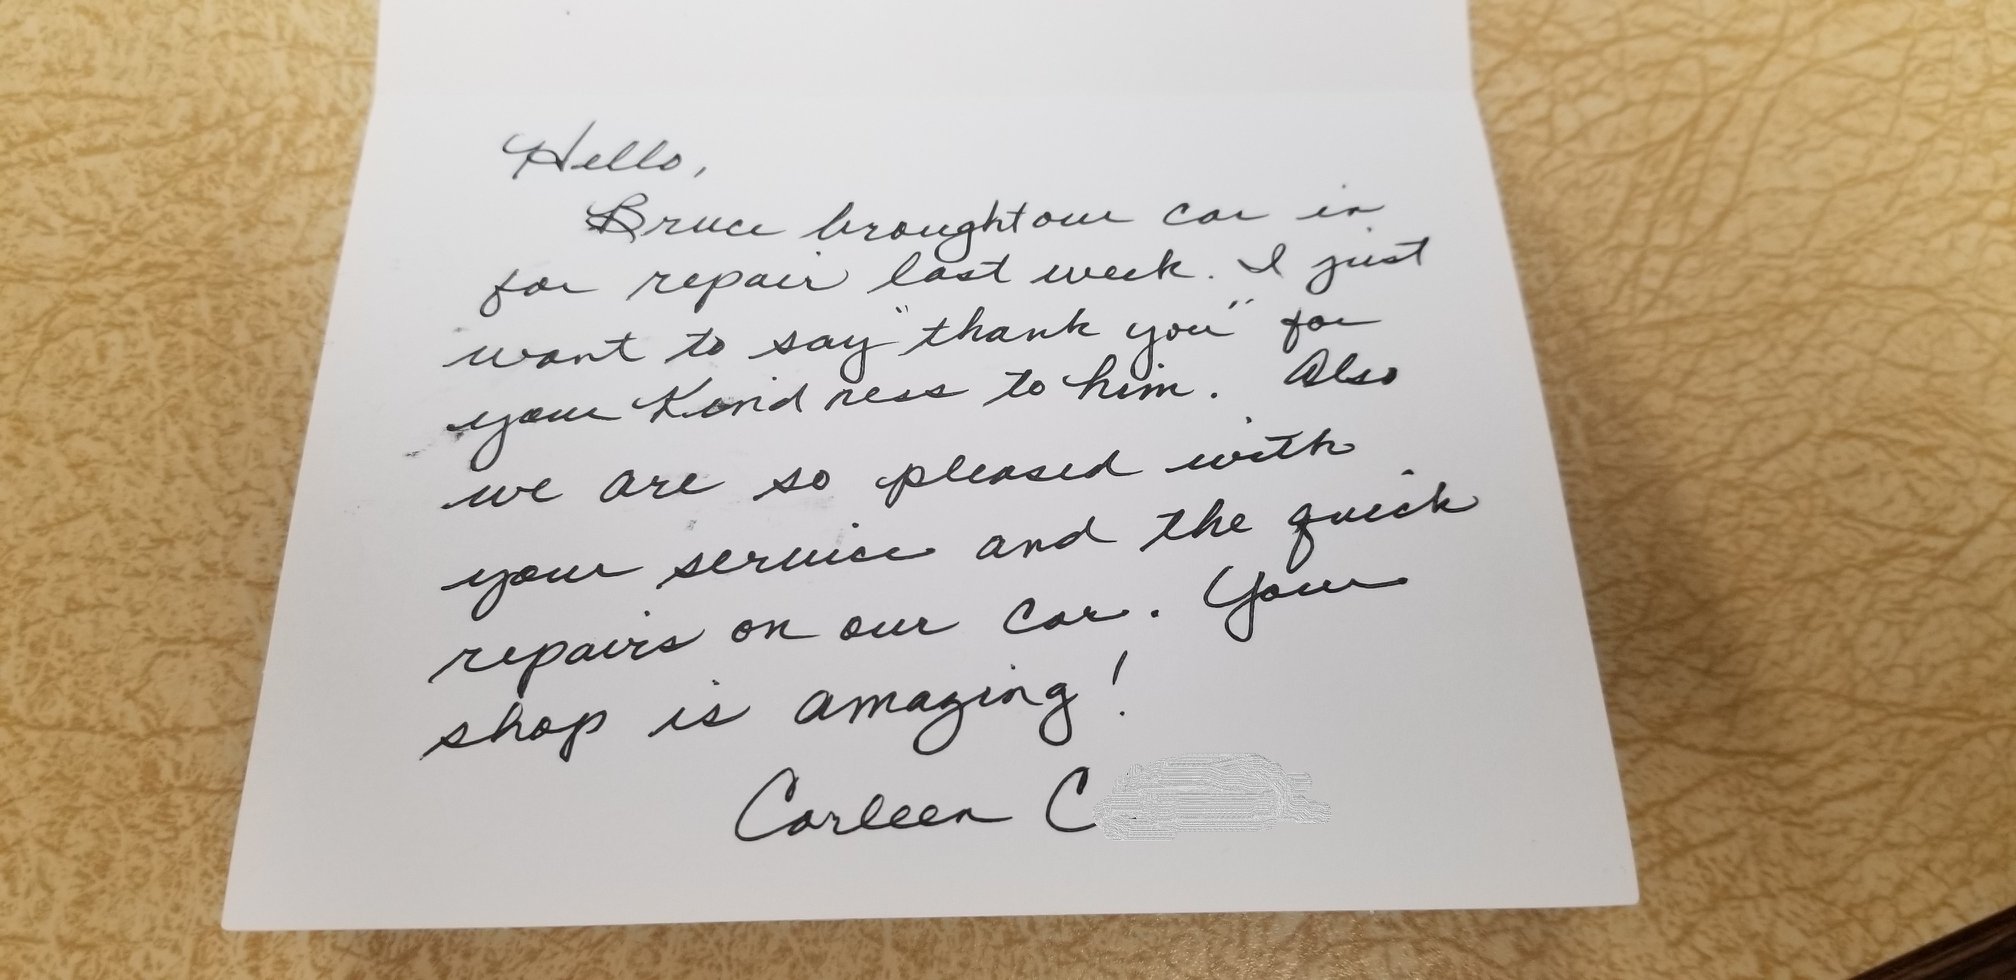 Hello,
Bruce brought our car in
for repair last week. I just
want to say "thank you" for
your Kindness to him. Also
we are so pleased with
your service and the quick
repairs on our car. Your
shop is amazing!
Carleen C